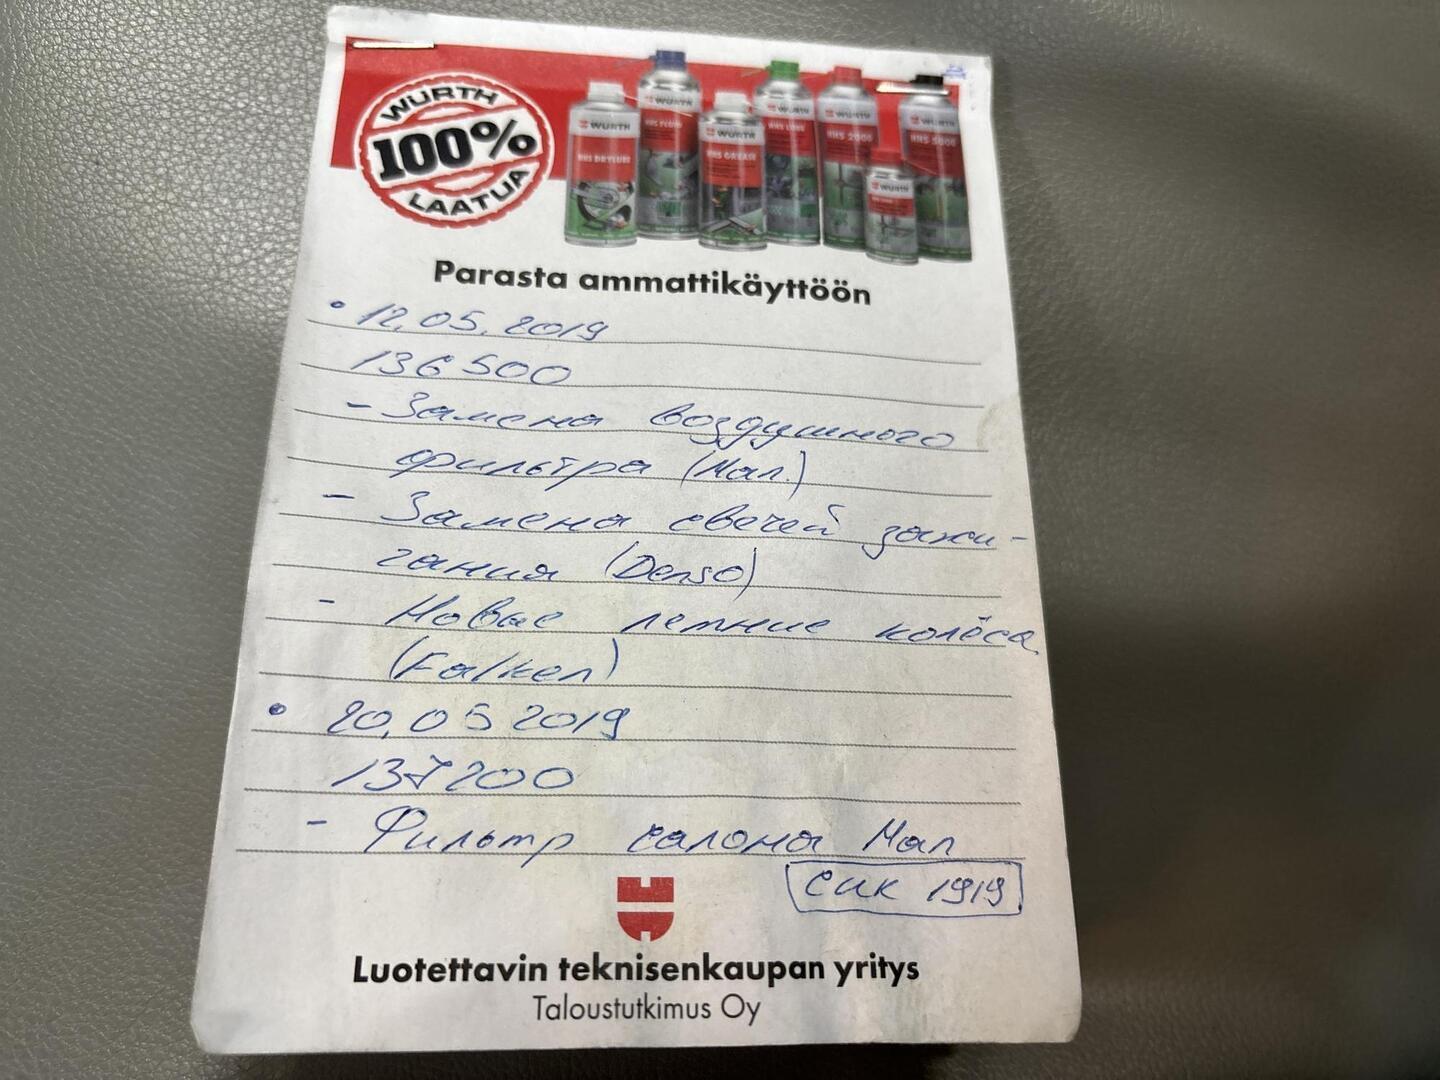 WÜRTH
100%
LAATUA
WÜRTH
HHS DRYLUBE
WÜRTH
HHS FLUID
WÜRTH
HHS GREASE
WÜRTH
HHS LUBE
HHS 2000
WÜRTH
HHS 5000
Parasta ammattikäyttöön
• 12.05.2019
136500
- Замена воздушного
фильтра (Мал.)
- Замена свечей зажи-
гания (Denso)
- Новые летние колёса
(Falken)
• 20.05 2019
137200
- Фильтр салона Мал
СИК 1919
Luotettavin teknisenkaupan yritys
Taloustutkimus Oy